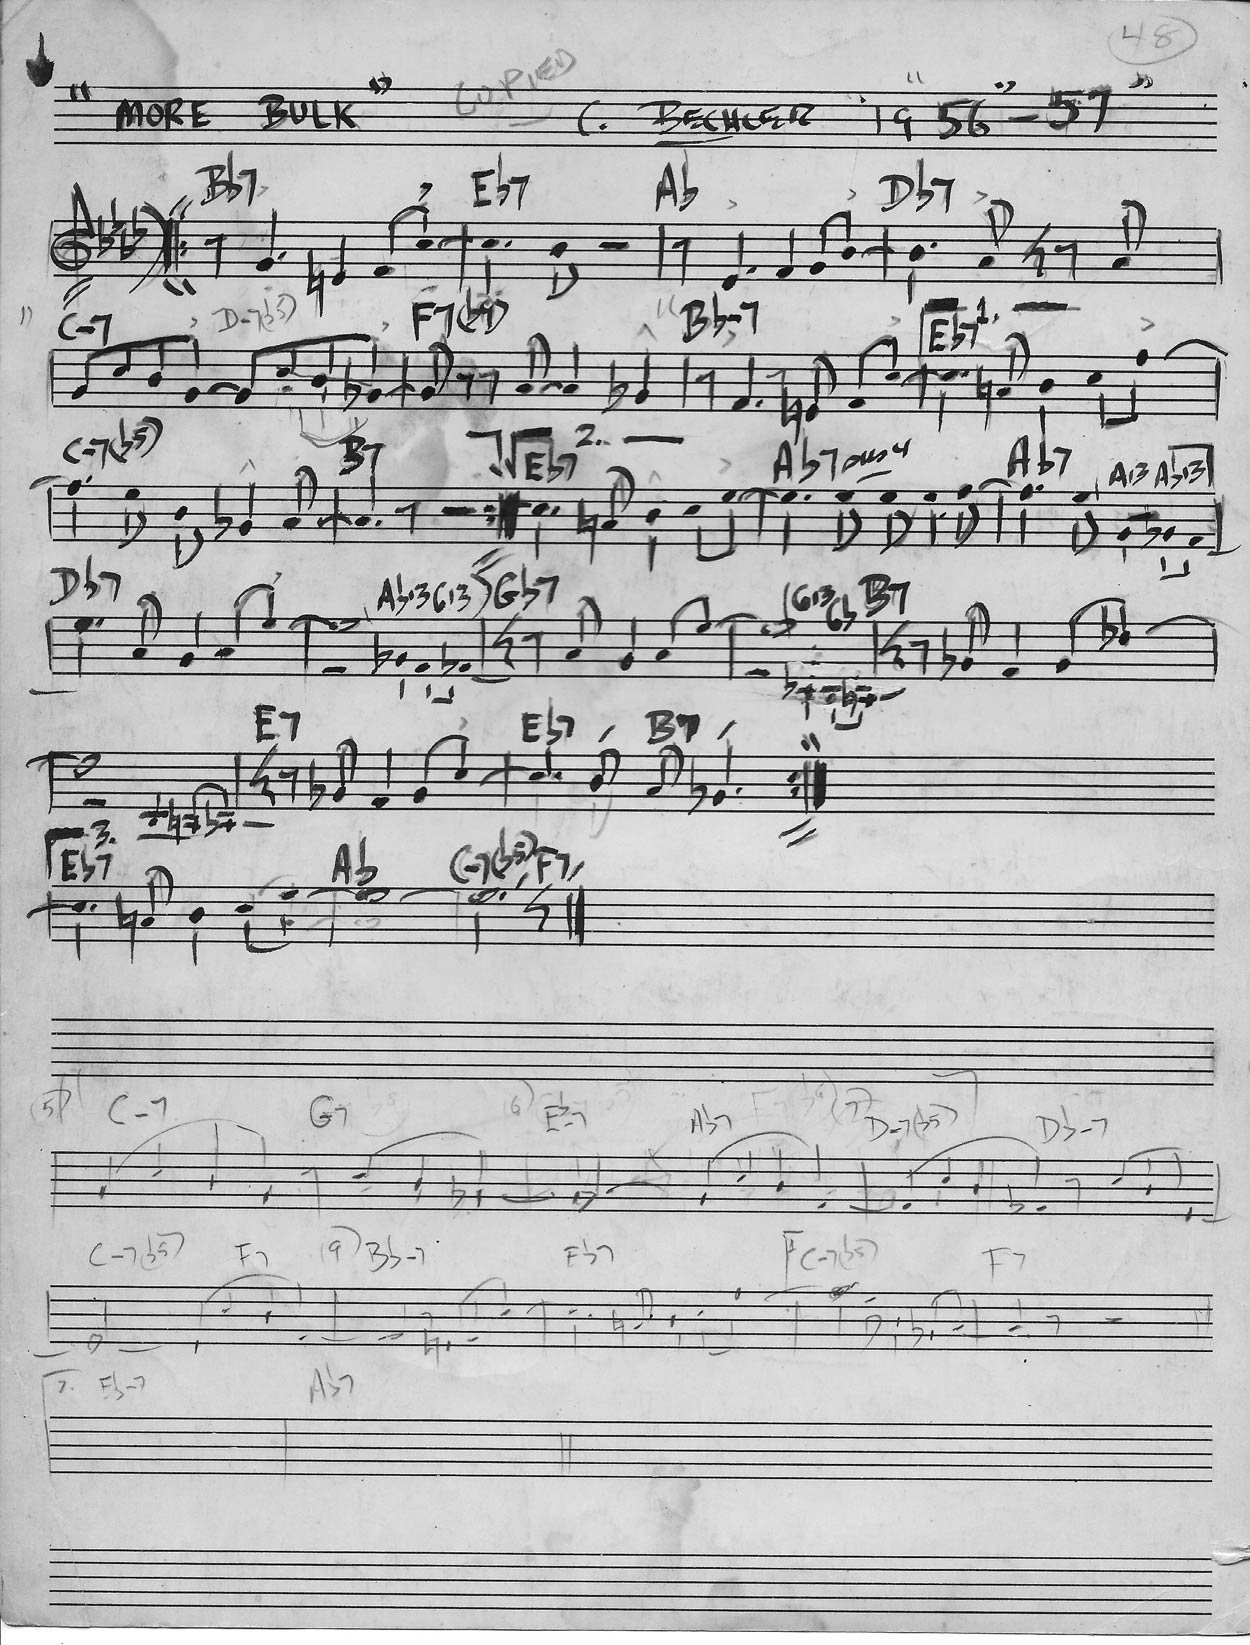 48
COPIED
"MORE BULK" C. BECHLER 1956"-57"
Bb7 Eb7 Ab Db7
C-7 D-7(b5) F7(b9) Bb-7 Eb7 1.
C-7(b5) B7 Eb7 2. Ab7sus4 Ab7 A13 Ab13
Db7 Ab13 G13 Gb7 G13 Gb B7
E7 Eb7 B7
3.
Eb7 Ab C-7(b5) F7
(5) C-7 G7 (6) Eb-7 Ab7 (7) D-7(b5) Db-7
C-7(b5) F7 (9) Bb-7 Eb7 C-7(b5) F7
2. Eb-7 Ab7